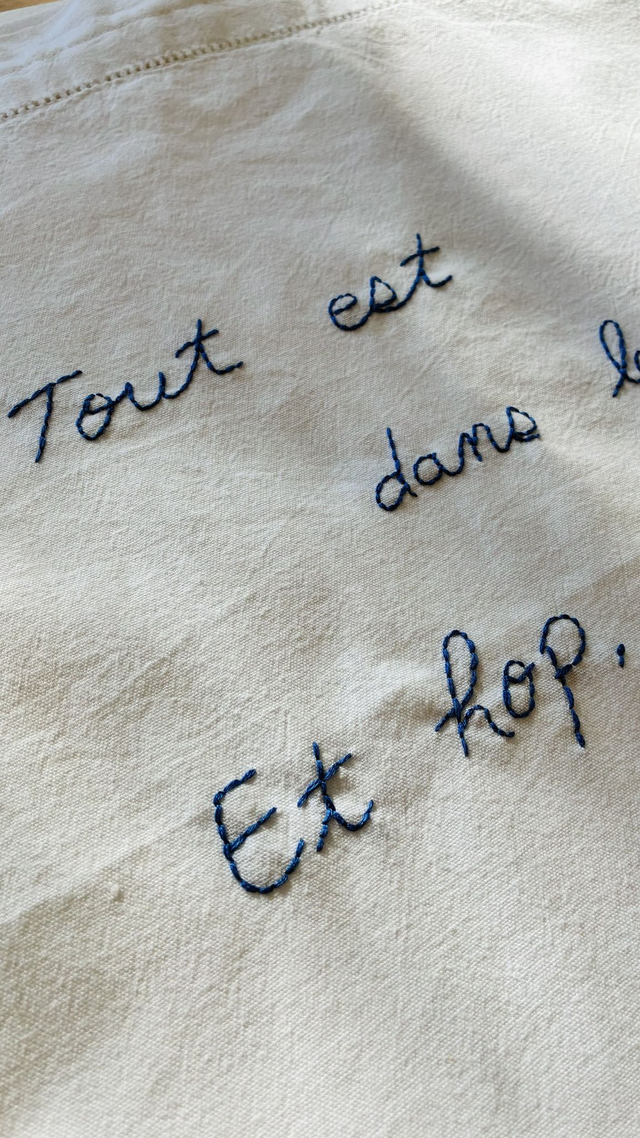 Tout est
dans
Et hop.